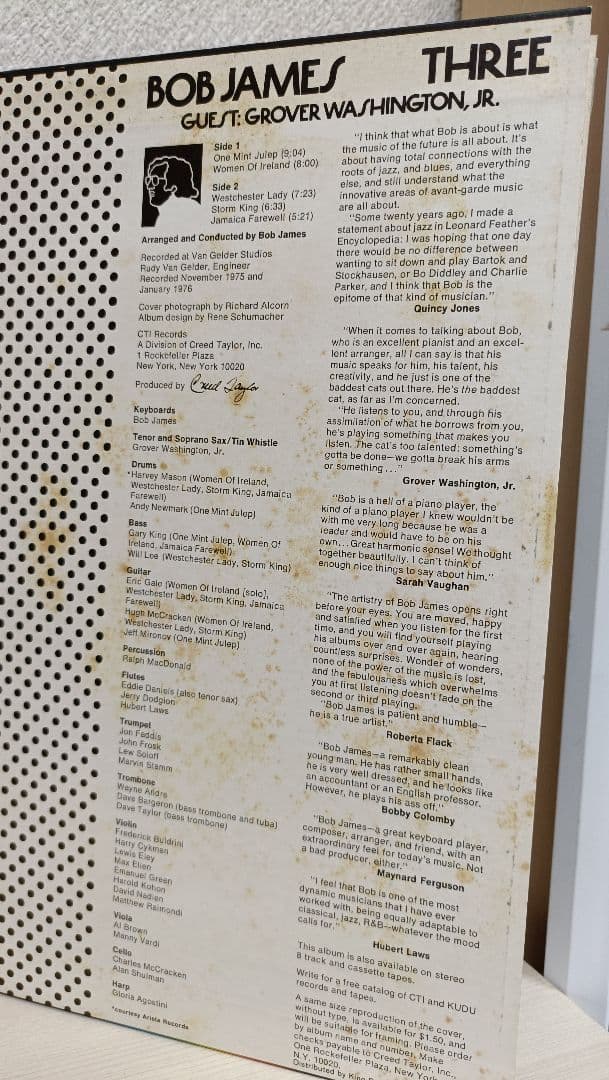 BOB JAMES THREE
GUEST: GROVER WASHINGTON, JR.
Side 1
One Mint Julep (9:04)
Women Of Ireland (8:00)
Side 2
Westchester Lady (7:23)
Storm King (6:33)
Jamaica Farewell (5:21)
Arranged and Conducted by Bob James
Recorded at Van Gelder Studios
Rudy Van Gelder, Engineer
Recorded November 1975 and
January 1976
Cover photograph by Richard Alcorn
Album design by Rene Schumacher
CTI Records
A Division of Creed Taylor, Inc.
1 Rockefeller Plaza
New York, New York 10020
Produced by Creed Taylor
Keyboards
Bob James
Tenor and Soprano Sax/Tin Whistle
Grover Washington, Jr.
Drums
*Harvey Mason (Women Of Ireland,
Westchester Lady, Storm King, Jamaica
Farewell)
Andy Newmark (One Mint Julep)
Bass
Gary King (One Mint Julep, Women Of
Ireland, Jamaica Farewell)
Will Lee (Westchester Lady, Storm King)
Guitar
Eric Gale (Women Of Ireland [solo],
Westchester Lady, Storm King, Jamaica
Farewell)
Hugh McCracken (Women Of Ireland,
Westchester Lady, Storm King)
Jeff Mironov (One Mint Julep)
Percussion
Ralph MacDonald
Flutes
Eddie Daniels (also tenor sax)
Jerry Dodgion
Hubert Laws
Trumpet
Jon Faddis
John Frosk
Lew Soloff
Marvin Stamm
Trombone
Wayne Andre
Dave Bargeron (bass trombone and tuba)
Dave Taylor (bass trombone)
Violin
Frederick Buldrini
Harry Cykman
Lewis Eley
Max Ellen
Emanuel Green
Harold Kohon
David Nadien
Matthew Raimondi
Viola
Al Brown
Manny Vardi
Cello
Charles McCracken
Alan Shulman
Harp
Gloria Agostini
*courtesy Arista Records
"I think that what Bob is about is what
the music of the future is all about. It's
about having total connections with the
roots of jazz, and blues, and everything
else, and still understand what the
innovative areas of avant-garde music
are all about.
"Some twenty years ago, I made a
statement about jazz in Leonard Feather's
Encyclopedia: I was hoping that one day
there would be no difference between
wanting to sit down and play Bartok and
Stockhausen, or Bo Diddley and Charlie
Parker, and I think that Bob is the
epitome of that kind of musician."
Quincy Jones
"When it comes to talking about Bob,
who is an excellent pianist and an excel-
lent arranger, all I can say is that his
music speaks for him, his talent, his
creativity, and he just is one of the
baddest cats out there. He's the baddest
cat, as far as I'm concerned.
"He listens to you, and through his
assimilation of what he borrows from you,
he's playing something that makes you
listen. The cat's too talented: something's
gotta be done—we gotta break his arms
or something . . ."
Grover Washington, Jr.
"Bob is a hell of a piano player, the
kind of a piano player I knew wouldn't be
with me very long because he was a
leader and would have to be on his
own... Great harmonic sense! We thought
together beautifully. I can't think of
enough nice things to say about him."
Sarah Vaughan
"The artistry of Bob James opens right
before your eyes. You are moved, happy
and satisfied when you listen for the first
time, and you will find yourself playing
his albums over and over again, hearing
countless surprises. Wonder of wonders,
none of the power of the music is lost,
and the fabulousness which overwhelms
you at first listening doesn't fade on the
second or third playing.
"Bob James is patient and humble—
he is a true artist."
Roberta Flack
"Bob James—a remarkably clean
young man. He has rather small hands,
he is very well dressed, and he looks like
an accountant or an English professor.
However, he plays his ass off."
Bobby Colomby
"Bob James—a great keyboard player,
composer, arranger, and friend, with an
extraordinary feel for today's music. Not
a bad producer, either."
Maynard Ferguson
"I feel that Bob is one of the most
dynamic musicians that I have ever
worked with, being equally adaptable to
classical, jazz, R&B—whatever the mood
calls for."
Hubert Laws
This album is also available on stereo
8 track and cassette tapes.
Write for a free catalog of CTI and KUDU
records and tapes.
A same size reproduction of the cover,
without type, is available for $1.50, and
will be suitable for framing. Please order
by album name and number. Make
checks payable to Creed Taylor, Inc.,
One Rockefeller Plaza, New York,
N.Y. 10020.
Distributed by